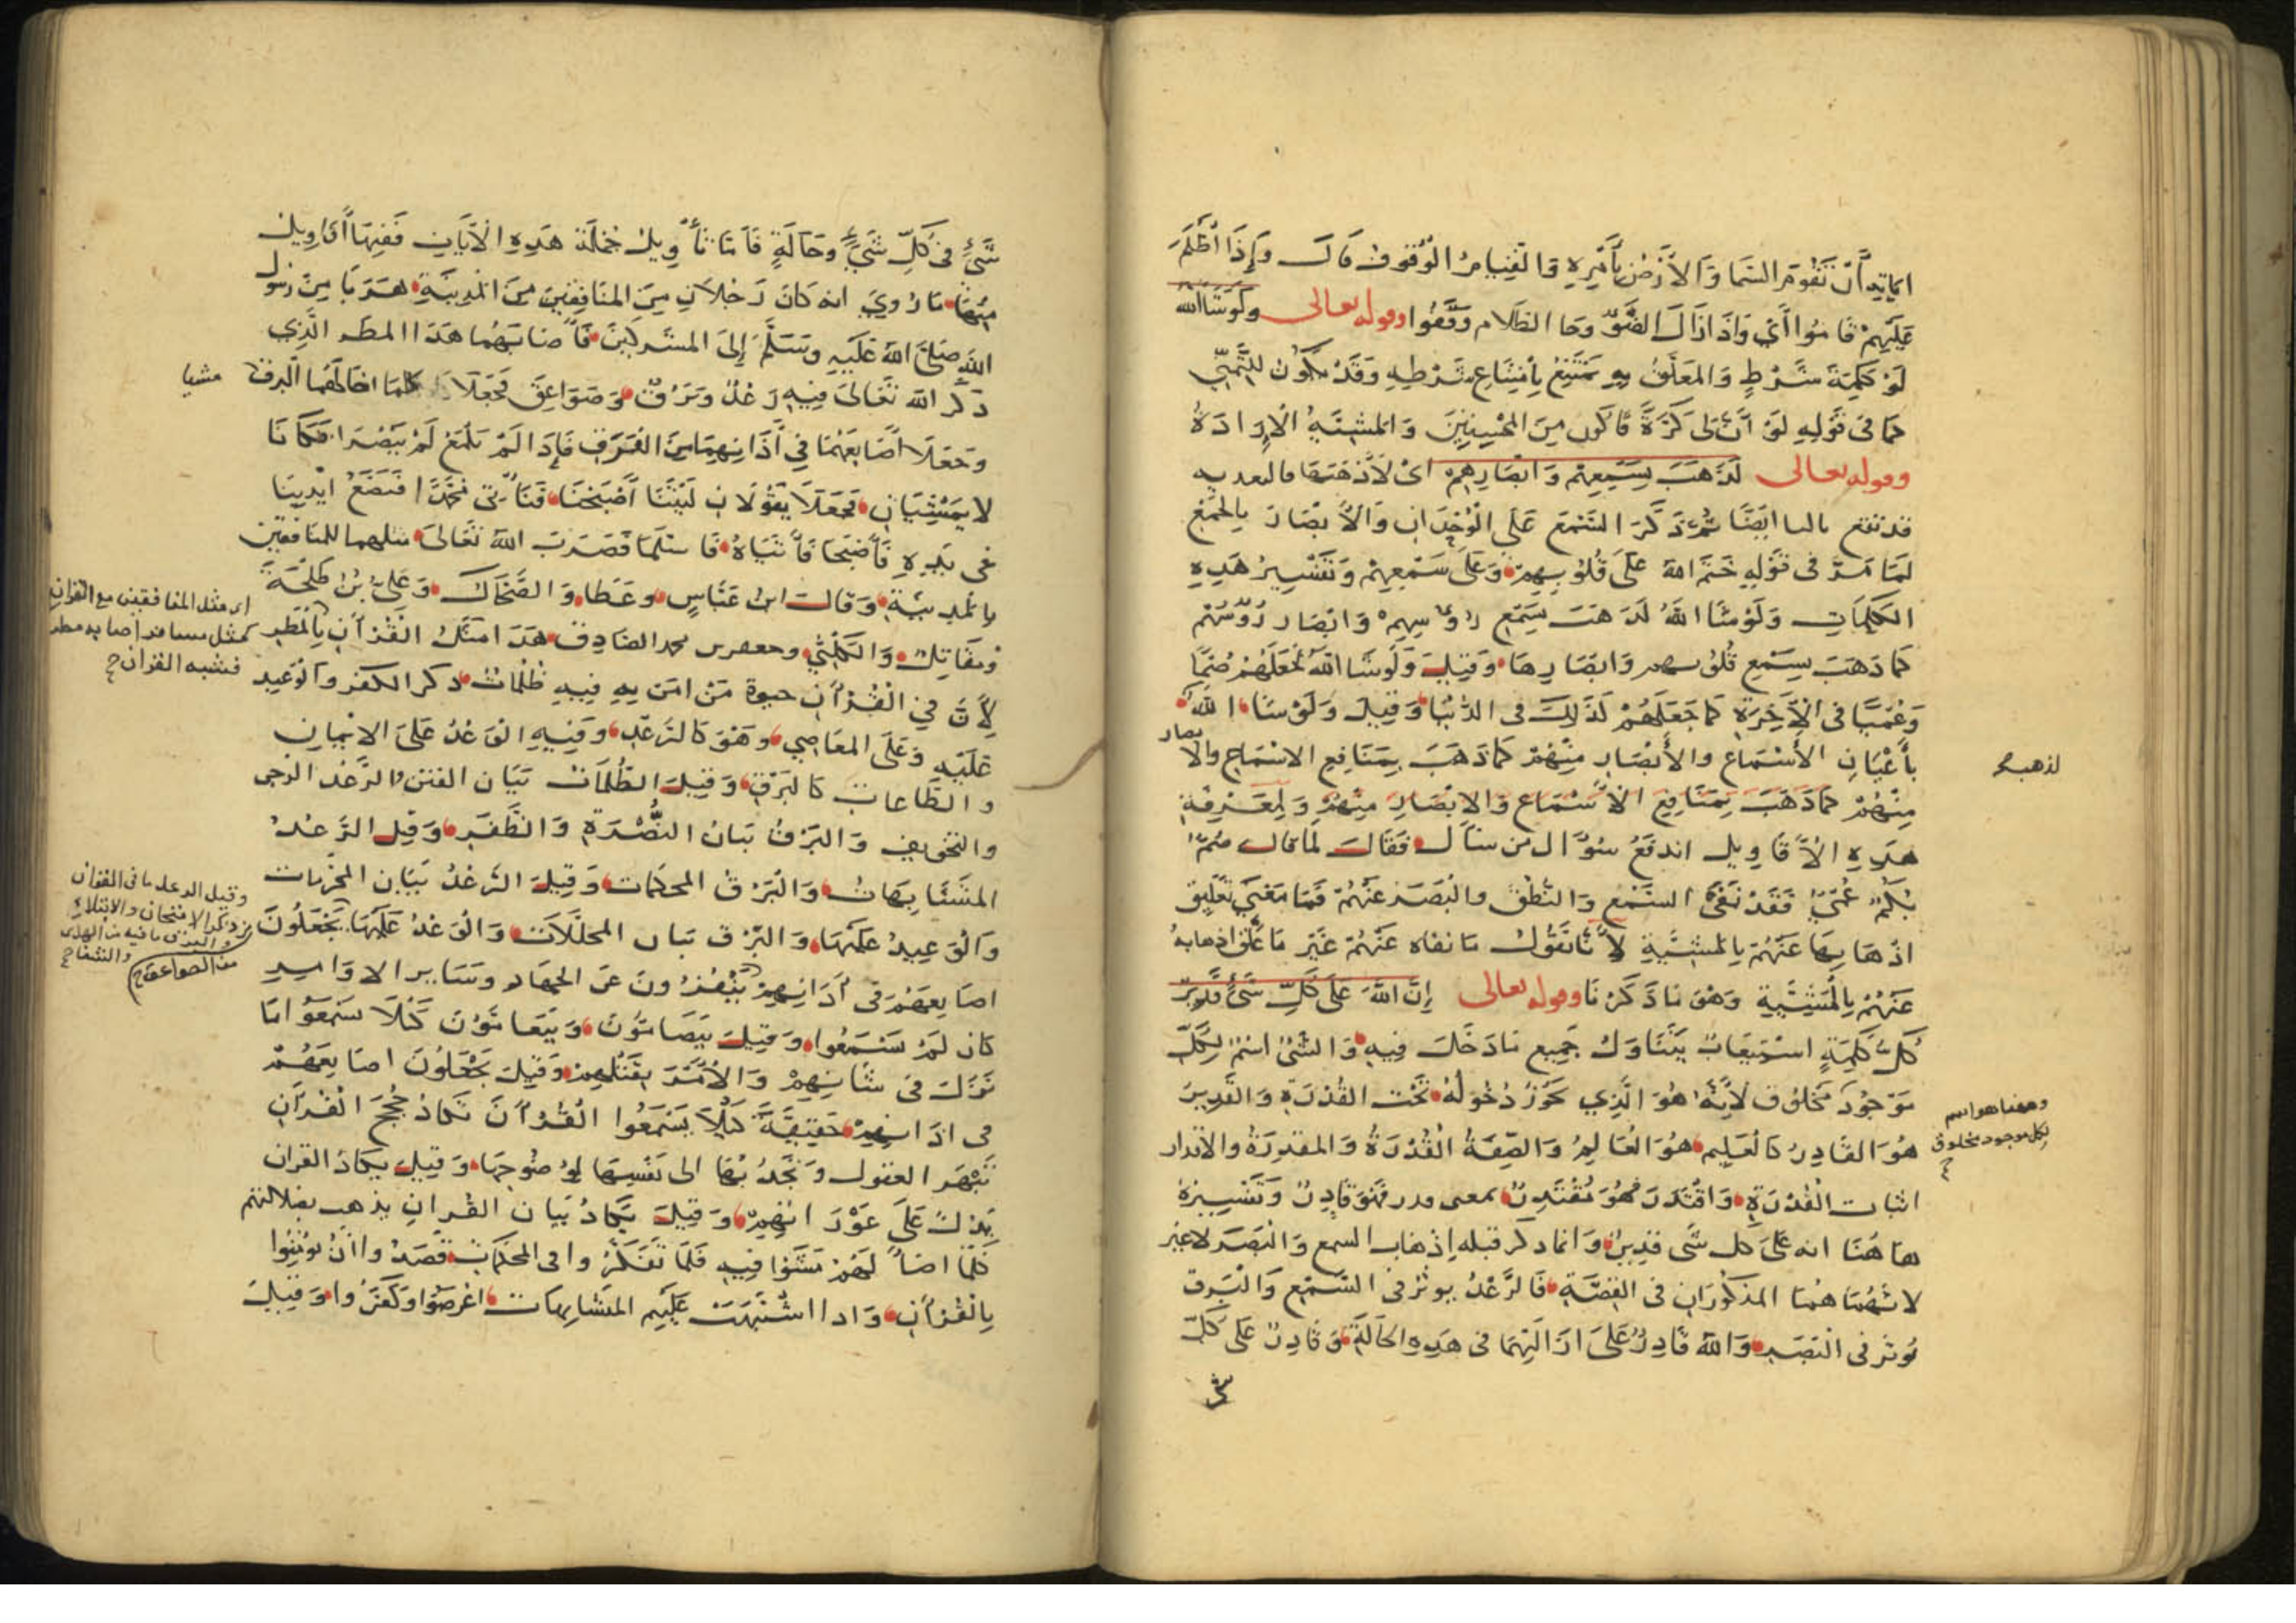 اياته أن تقوم السما والأرض بأمره والقيام الوقوف قال وإذا أظلم
عليهم قاموا أي واذا زال الضو وجا الظلام وقفوا وقوله تعالى ولو شا الله
لو كلمة شرط والمعلق به يمتنع بامتناع شرطه وقد يكون للتمني
كما في قوله لو أن لي كرة فأكون من المحسنين والمشية الإرادة
وقوله تعالى لذهب بسمعهم وابصارهم اي لأذهبها فالتعديه
قد تقع بالبا ايضا ثم ذكر السمع على الوحدان والأبصار بالجمع
لما مر في قوله ختم الله على قلوبهم وعلى سمعهم وتفسير هذه
الكلمات ولو شا الله لذهب بسمع رؤسهم وابصار رؤسهم
كما ذهب بسمع قلوبهم وابصارها وقيل ولو شا الله لجعلهم صما
وعميا في الآخرة كما جعلهم كذلك في الدنيا وقيل ولو شا الله
لذهب
بأعيان الأسماع والأبصار منهم كما ذهب بمنافع الاسماع والابصار
منهم كما ذهب بمنافع الأسماع والابصار منهم ولمعرفة
هذه الأقاويل اندفع سؤال من سأل فقال لما قال صم
بكم عمي فقد نفى السمع والنطق والبصر عنهم فما معنى تعليق
اذهابها عنهم بالمشية لأنا نقول ما نفاه عنهم غير ما علق اذهابه
عنهم بالمشية وهو ما ذكرنا وقوله تعالى إن الله على كل شئ قدير
كل كلمة استيعاب يتناول جميع ما دخلت فيه والشئ اسم لكل
موجود مخلوق لأنه هو الذي يجوز دخوله تحت القدرة والقدير
وههنا هو اسم
لكل موجود مخلوق
هو القادر كالعليم هو العالم والصفة القدرة والمقدرة والاقتدار
اثبات القدرة واقتدر فهو مقتدر بمعنى قدر فهو قادر وتفسيره
هاهنا انه على كل شى قدير وانما ذكر قبله إذهاب السمع والبصر لا غير
لانهما هما المذكوران في القصة فالرعد يوثر في السمع والبرق
يوثر في البصر والله قادر على ازالتهما في هذه الحالة وقادر على كل
شئ في كل شئ وحالة فأما تأويل جملة هذه الآيات ففيها أقاويل
منها ما روي انه كان رجلان من المنافقين من المدينة هربا من رسول
الله صلى الله عليه وسلم إلى المشركين فأصابهما هذا المطر الذي
ذكر الله تعالى فيه رعد وبرق وصواعق فجعلا كلما اضا لهما البرق مشيا
وجعلا أصابعهما في أذانهما من الفرق فإذا لم يلمع لم يبصرا فكانا
لا يمشيان فجعلا يقولان ليتنا أصبحنا فنأتي محمدا فنضع ايدينا
في يده فأصبحا فأتياه فاسلما فضرب الله تعالى مثلهما للمنافقين
بالمدينة وقال ابن عباس وعطا والضحاك وعلي بن طلحة
ومقاتل والكلبي وجعفر بن محمد الصادق هذا مثل القرآن بالمطر
اى مثل المنافقين مع القران
كمثل مسافر أصابه مطر
فشبه القران
لأن في القرآن حيوة من امن به فيه ظلمات ذكر الكفر والوعيد
عليه وعلى المعاصي وهو كالرعد وفيه الوعد على الايمان
والطاعات كالبرق وقيل الظلمات بيان الفتن والرعد الزجر
والتخويف والبرق بيان النصرة والظفر وقيل الرعد
المتشابهات والبرق المحكمات وقيل الرعد بيان المحرمات
والوعيد عليها والبرق بيان المحللات والوعد عليها يجعلون
وقيل الرعد ما في القران
من ذكر الامتحان والابتلاء
والبرق ما فيه من الهدى
والشفا
من الصواعق
اصابعهم في أذانهم يبعدون عن الجهاد وساير الاوامر
كان لم يسمعوا وقيل يتصامون ويتعامون كيلا يسمعوا ما
نزل في شانهم والأمر بقتلهم وقيل يجعلون اصابعهم
في اذانهم حقيقة كيلا يسمعوا القرأن تكاد حجج القرآن
تبهر العقول وتجذبها الى نفسها لوضوحها وقيل يكاد القران
يدل على عورانهم وقيل يكاد بيان القران يذهب بضلالتهم
كلما اضا لهم مشوا فيه فلما تفكروا في المحكمات قصدوا ان يؤمنوا
بالقرآن واذا اشتبهت عليهم المتشابهات اعرضوا وكفروا وقيل